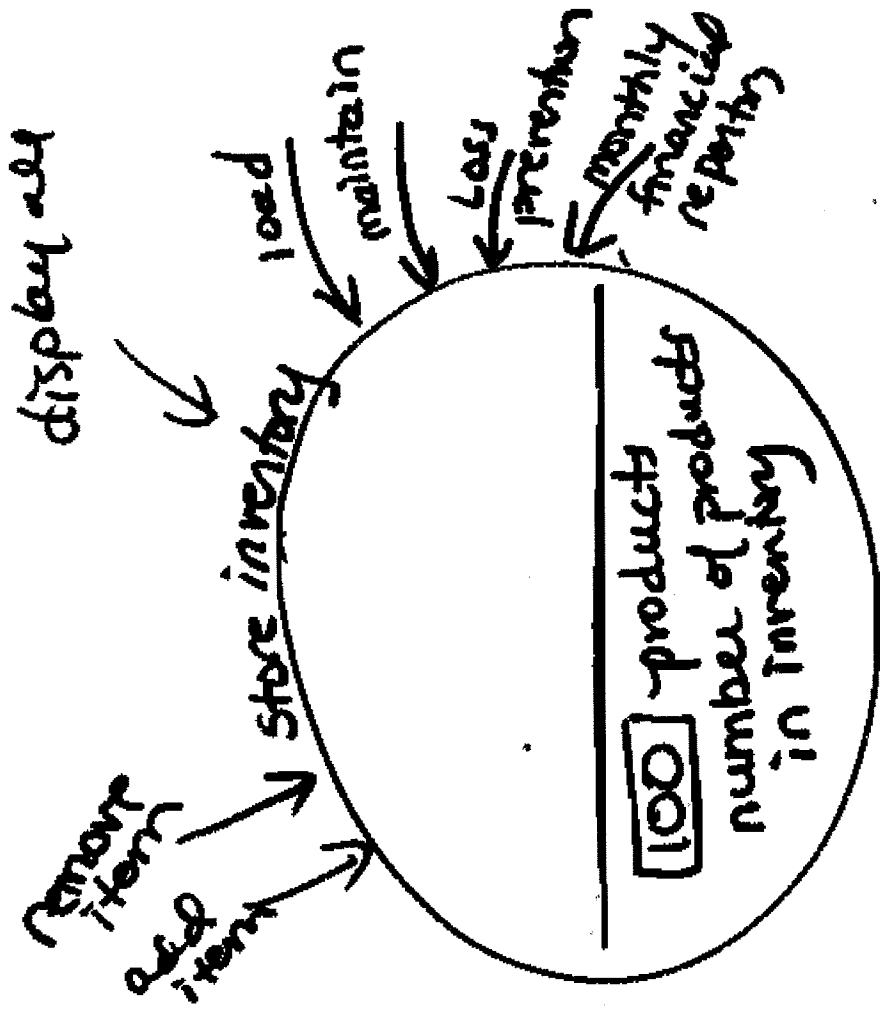 remove
item
add
item
display all
store inventory
load
maintain
Loss
prevention
monthly
financial
reporting
100 products
number of products
in inventory